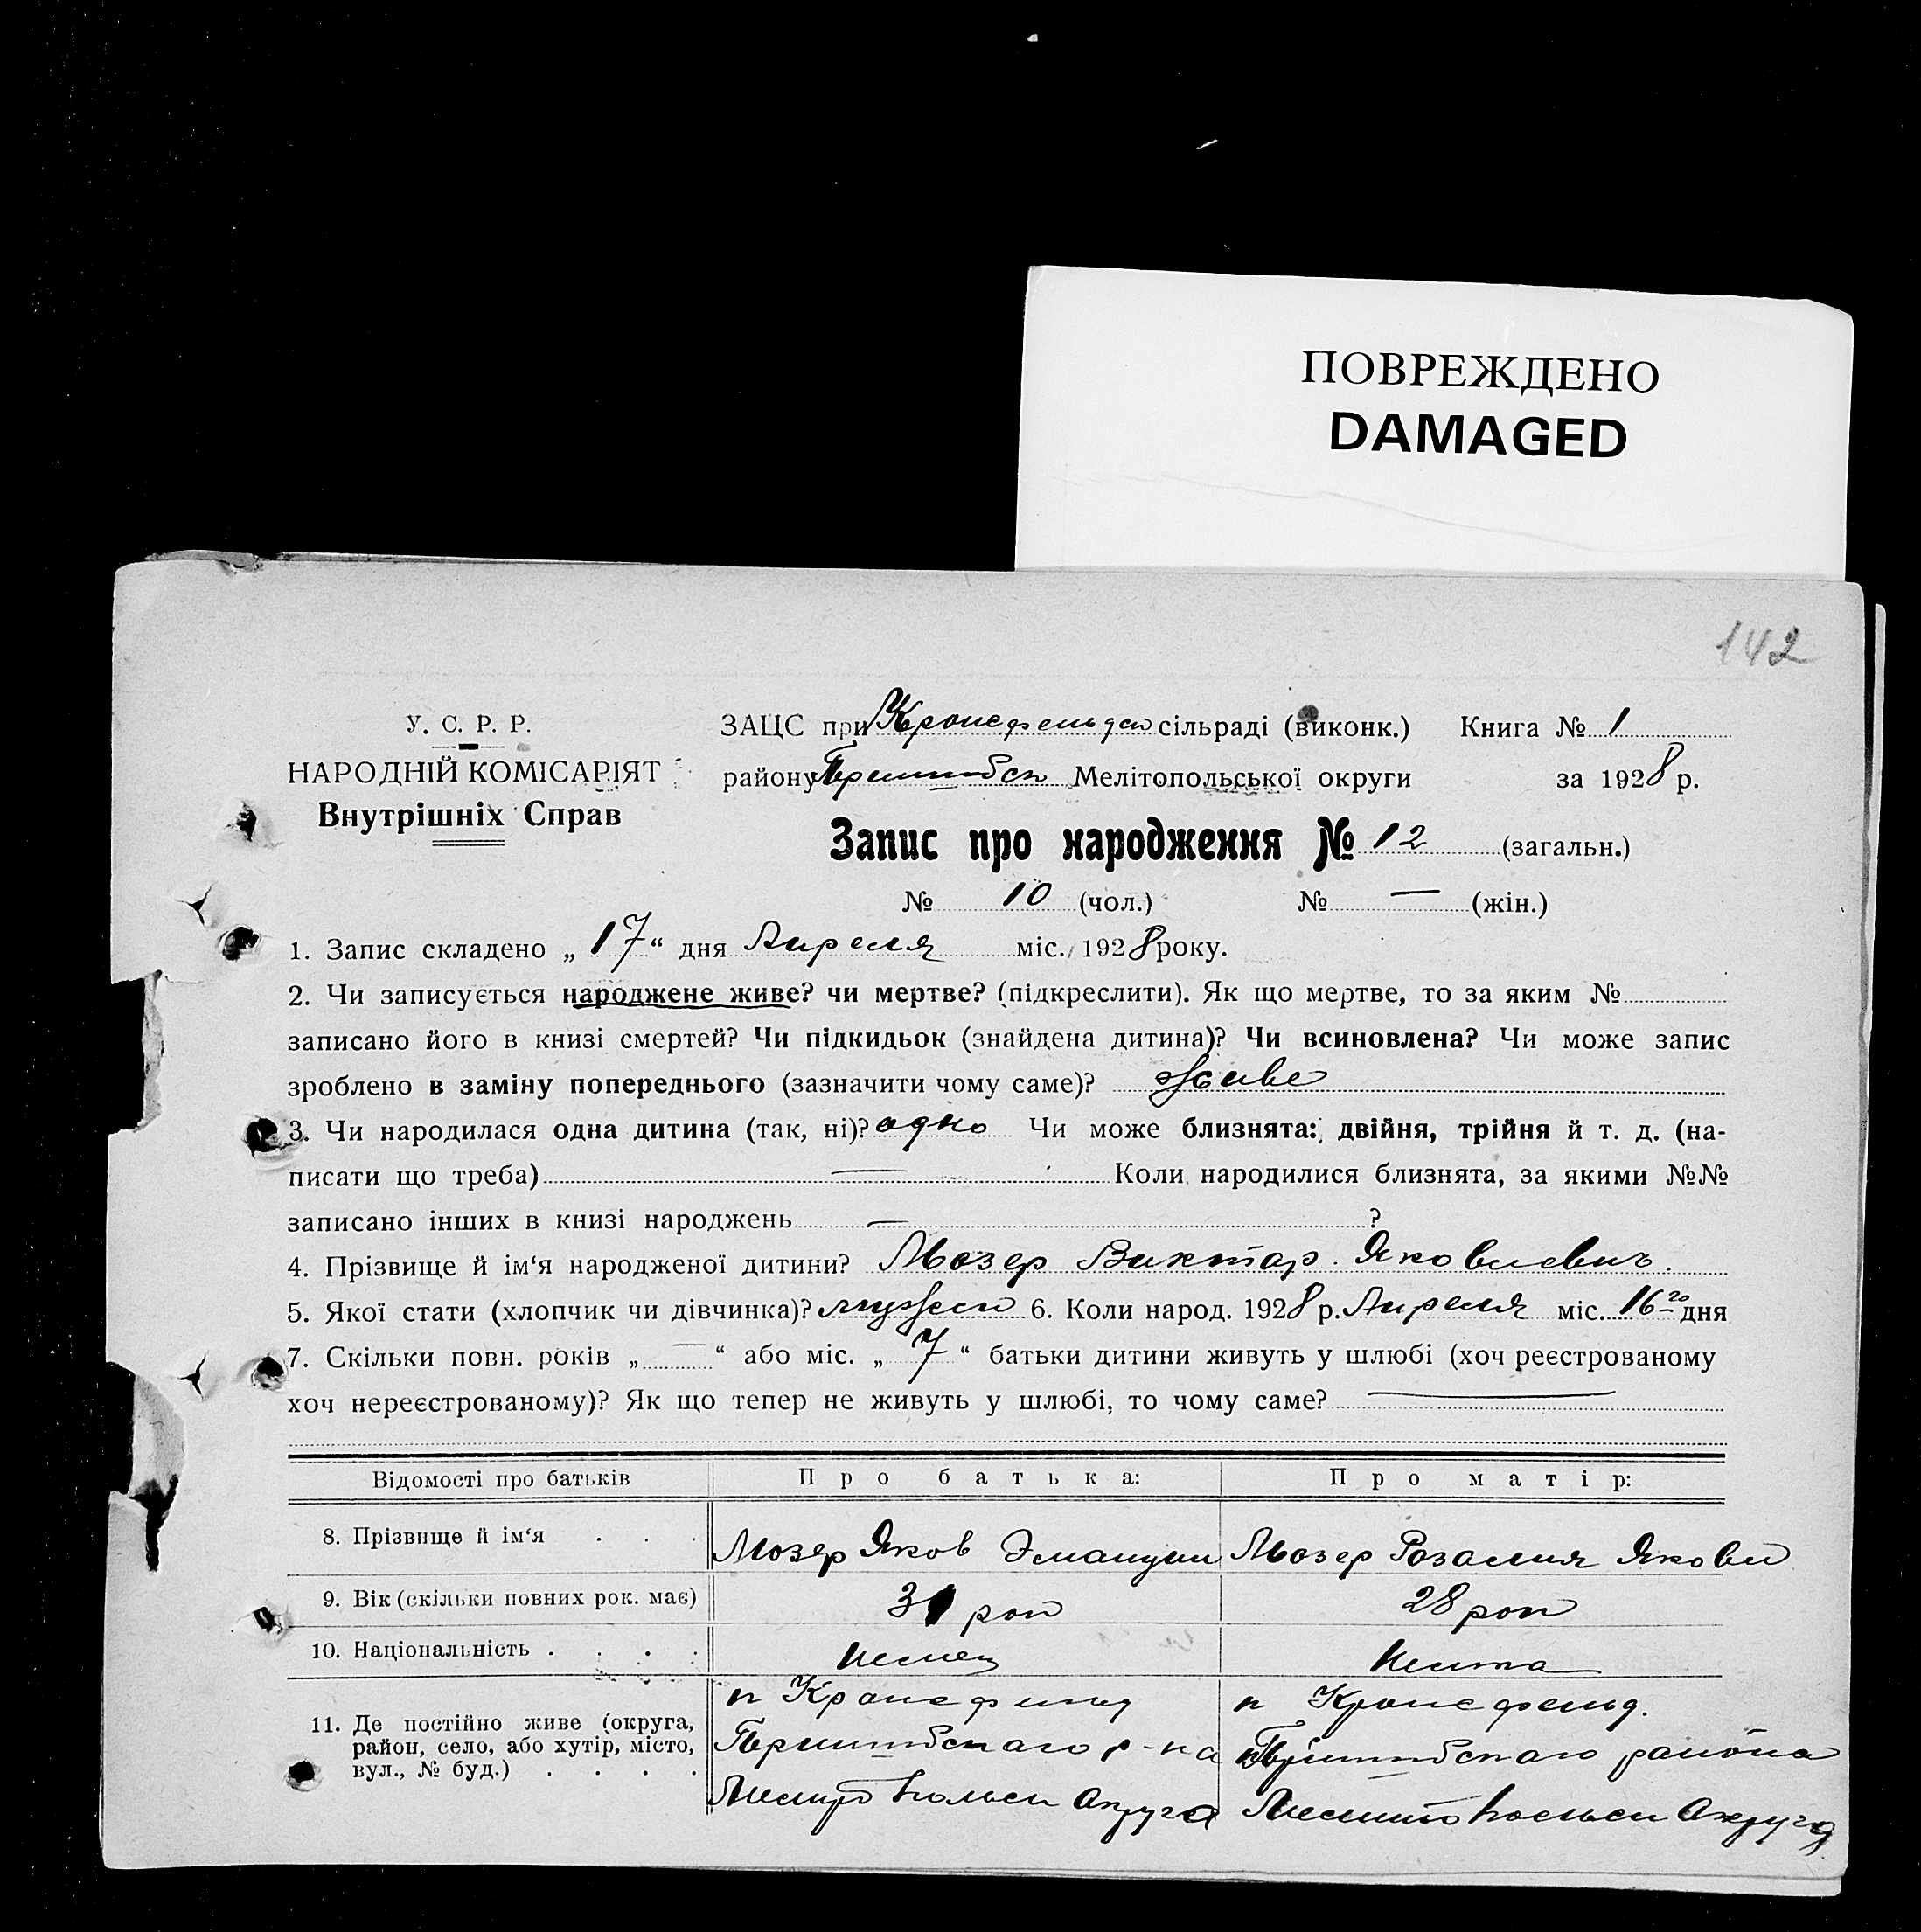 ПОВРЕЖДЕНО
DAMAGED
142
У. С. Р. Р.
НАРОДНІЙ КОМІСАРІЯТ
Внутрішніх Справ
ЗАЦС при Кронсфельдск сільраді (виконк.) Книга № 1
району Пришибск Мелітопольської округи за 1928 р.
Запис про народження № 12 (загальн.)
№ 10 (чол.) № — (жін.)
1. Запис складено „17“ дня Апреля міс. 1928 року.
2. Чи записується народжене живе? чи мертве? (підкреслити). Як що мертве, то за яким №
записано його в книзі смертей? Чи підкидьок (знайдена дитина)? Чи всиновлена? Чи може запис
зроблено в заміну попереднього (зазначити чому саме)? живе
3. Чи народилася одна дитина (так, ні)? одно Чи може близнята: двійня, трійня й т. д. (на-
писати що треба) — Коли народилися близнята, за якими №№
записано інших в книзі народжень — ?
4. Прізвище й ім‘я народженої дитини? Мозер Виктор Яковлевич.
5. Якої стати (хлопчик чи дівчинка)? мужск 6. Коли народ. 1928 р. Апреля міс. 16го дня
7. Скільки повн. років „—“ або міс. „7“ батьки дитини живуть у шлюбі (хоч реєстрованому
хоч нереєстрованому)? Як що тепер не живуть у шлюбі, то чому саме? —
Відомості про батьків Про батька: Про матір:
8. Прізвище й ім‘я . . . Мозер Яков Эмануил Мозер Розалия Якови
9. Вік (скільки повних рок. має) 31 рок 28 рок
10. Національність . . . . немец немка
11. Де постійно живе (округа, район, село, або хутір, місто, вул., № буд.) . . . .
к Кронсфельд
Пришибскаго р-на
Мелитопольск Округа
к Кронсфельд.
Пришибскаго района
Мелитопольск Округа